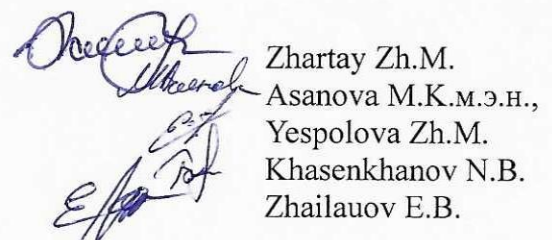 Zhartay Zh.M.
Asanova M.K.м.э.н.,
Yespolova Zh.M.
Khasenkhanov N.B.
Zhailauov E.B.